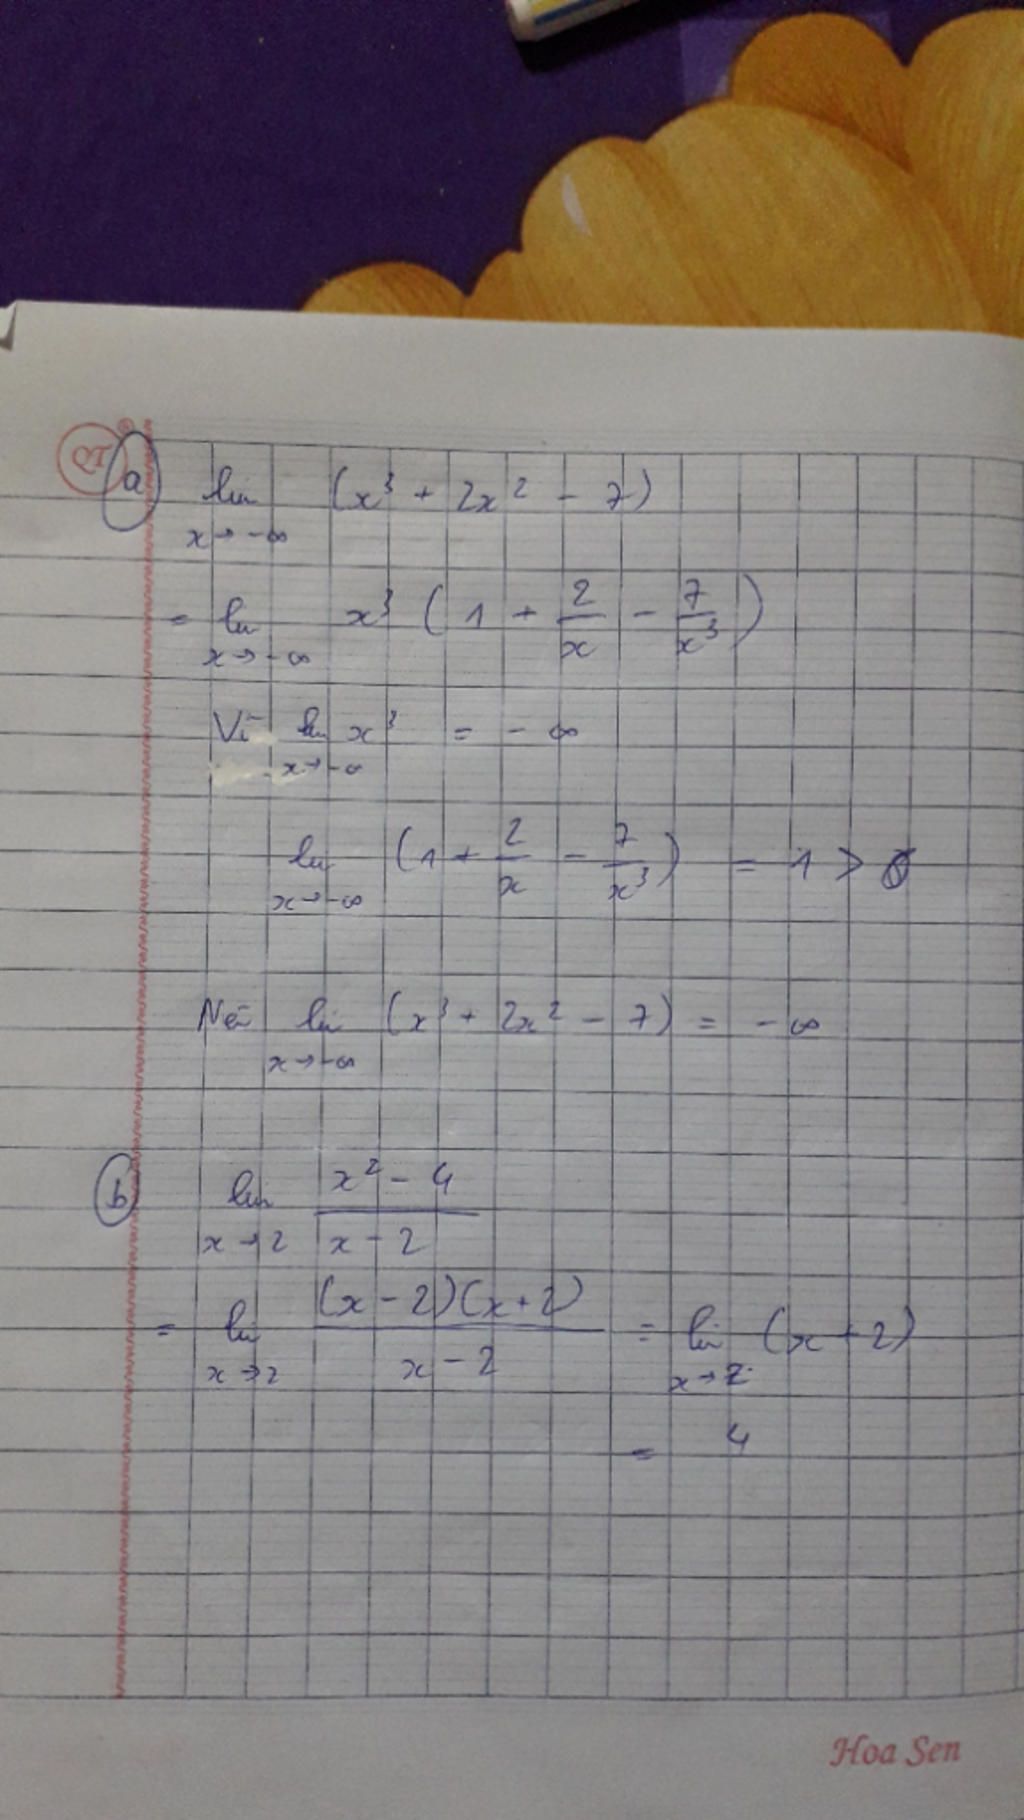 PI ®
a lim (x³ + 2x² - 7)
x→-∞
= lim x³ (1 + 2/x - 7/x³)
x→-∞
Vì lim x³ = -∞
x→-∞
lim (1 + 2/x - 7/x³) = 1 > 0
x→-∞
Nên lim (x³ + 2x² - 7) = -∞
x→-∞
b lim (x² - 4)/(x - 2)
x→2
= lim (x-2)(x+2)/(x-2) = lim (x+2)
x→2 x→2
= 4
Hoa Sen